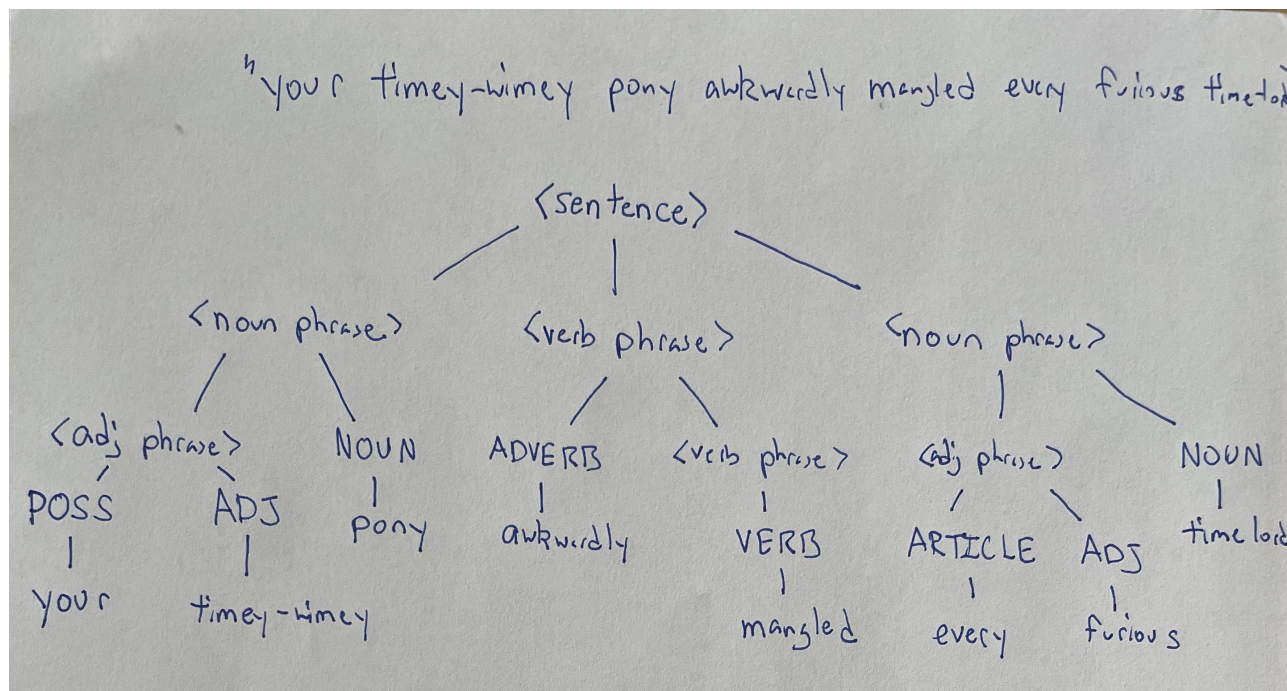 "your timey-wimey pony awkwardly mangled every furious timelord
<sentence>
<noun phrase> <verb phrase> <noun phrase>
<adj phrase> NOUN ADVERB <verb phrase> <adj phrase> NOUN
POSS ADJ pony awkwardly VERB ARTICLE ADJ timelord
your timey-wimey mangled every furious